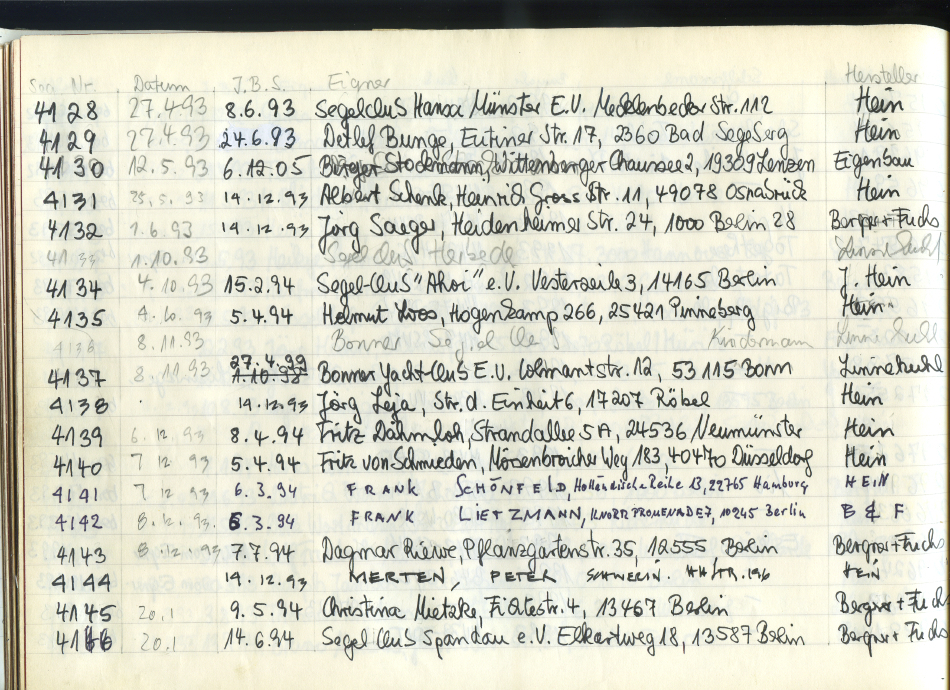 Nr. Datum J.B.S. Eigner Hersteller
4128 27.4.93 8.6.93 Segelclub Hansa Münster E.V. Mecklenbecker Str. 112 Hein
4129 27.4.93 24.6.93 Detlef Bunge, Eutiner Str. 17, 2360 Bad Segeberg Hein
4130 12.5.93 6.12.05 Stockmann, Wittenberger Chaussee 2, 19309 Lenzen Eigenbau
4131 25.5.93 14.12.93 Albert Schenk, Heinrich Gross Str. 11, 49078 Osnabrück Hein
4132 1.6.93 14.12.93 Jörg Saeger, Heidenheimer Str. 24, 1000 Berlin 28 Bergner + Fuchs
4133 1.10.93 Segelclub Herbede
4134 4.10.93 15.2.94 Segel-Club "Ahoi" e.V. 3, 14165 Berlin J. Hein
4135 4.10.93 5.4.94 Helmut Hogenkamp 266, 25421 Pinneberg Hein
4136 8.11.93 Bonner Segel Club Kindermann
4137 8.11.93 27.4.99 1.10.98 Bonner Yacht-Club E.V. Colmantstr. 12, 53115 Bonn
4138 14.12.93 Jörg Leja, Str. d. Einheit 6, 17207 Röbel Hein
4139 6.12.93 8.4.94 Fritz Strandallee 5A, 24536 Neumünster Hein
4140 7.12.93 5.4.94 Fritz von Schmieden, Mörsenbroicher Weg 183, 40470 Düsseldorf Hein
4141 7.12.93 6.3.94 FRANK SCHÖNFELD, Holländische Reihe 13, 22765 Hamburg HEIN
4142 8.12.93 6.3.94 FRANK LIETZMANN, KNORRPROMENADE 7, 10245 Berlin B & F
4143 8.12.93 7.7.94 Dagmar Riewe, Pflanzgartenstr. 35, 12555 Berlin Bergner + Fuchs
4144 14.12.93 MERTEN, PETER SCHWERIN. HEIN
4145 20.1 9.5.94 Christina Mietzke, Fichtestr. 4, 13467 Berlin Bergner + Fuchs
4146 20.1 14.6.94 Segel Club Spandau e.V. Elkartweg 18, 13587 Berlin Bergner + Fuchs